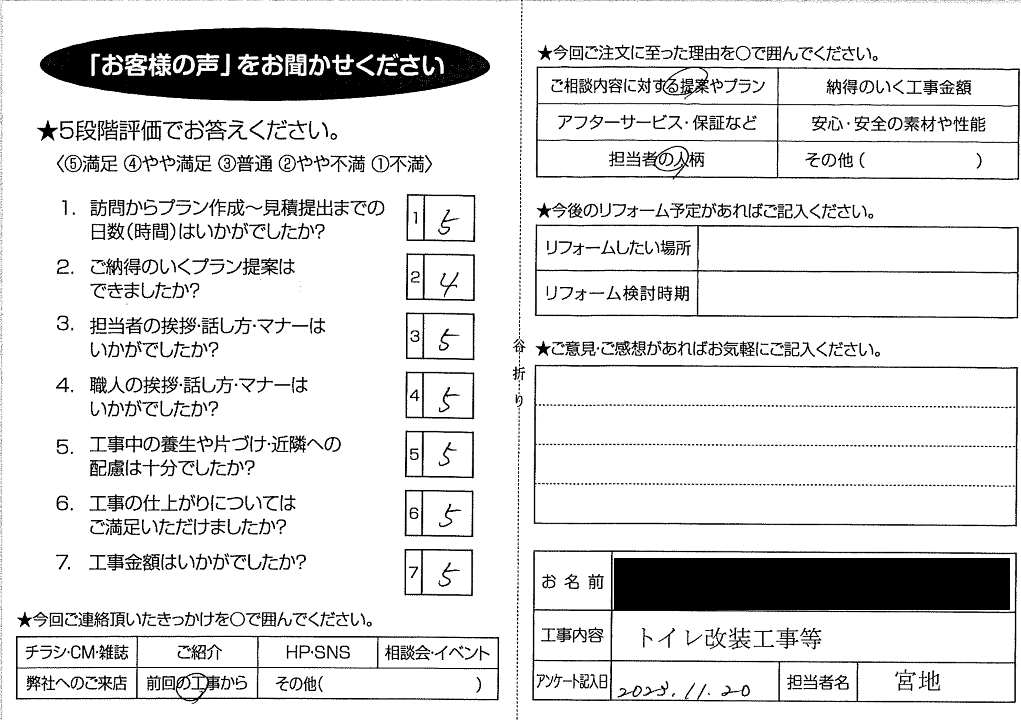 「お客様の声」をお聞かせください
★5段階評価でお答えください。
〈⑤満足 ④やや満足 ③普通 ②やや不満 ①不満〉
1. 訪問からプラン作成～見積提出までの
日数(時間)はいかがでしたか?
1 5
2. ご納得のいくプラン提案は
できましたか?
2 4
3. 担当者の挨拶･話し方･マナーは
いかがでしたか?
3 5
4. 職人の挨拶･話し方･マナーは
いかがでしたか?
4 5
5. 工事中の養生や片づけ･近隣への
配慮は十分でしたか?
5 5
6. 工事の仕上がりについては
ご満足いただけましたか?
6 5
7. 工事金額はいかがでしたか?
7 5
★今回ご連絡頂いたきっかけを〇で囲んでください。
チラシ･CM･雑誌 ご紹介 HP･SNS 相談会･イベント
弊社へのご来店 前回の工事から その他( )
谷折り
★今回ご注文に至った理由を〇で囲んでください。
ご相談内容に対する提案やプラン 納得のいく工事金額
アフターサービス・保証など 安心・安全の素材や性能
担当者の人柄 その他( )
★今後のリフォーム予定があればご記入ください。
リフォームしたい場所
リフォーム検討時期
★ご意見･ご感想があればお気軽にご記入ください。
お名前
工事内容 トイレ改装工事等
アンケート記入日 2023.11.20 担当者名 宮地